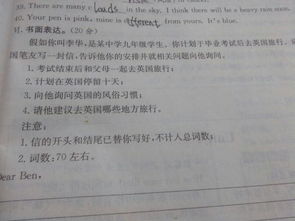 39. There are many loads in the sky. I think there will be a heavy rain soon.
40. Your pen is pink, mine is different from yours. It's blue.
书面表达。(20 分)
假如你叫李华,是某中学九年级学生。你计划于毕业考试后去英国旅行。
国笔友写一封信,告诉他你的安排并就相关问题向他询问。
1. 考试结束后和父母一起去英国旅行;
2. 计划在英国停留十天;
3. 向他询问英国的风俗习惯;
4. 请他建议去英国哪些地方旅行。
注意:
1. 信的开头和结尾已替你写好,不计入总词数;
2. 词数:70 左右。
Dear Ben,